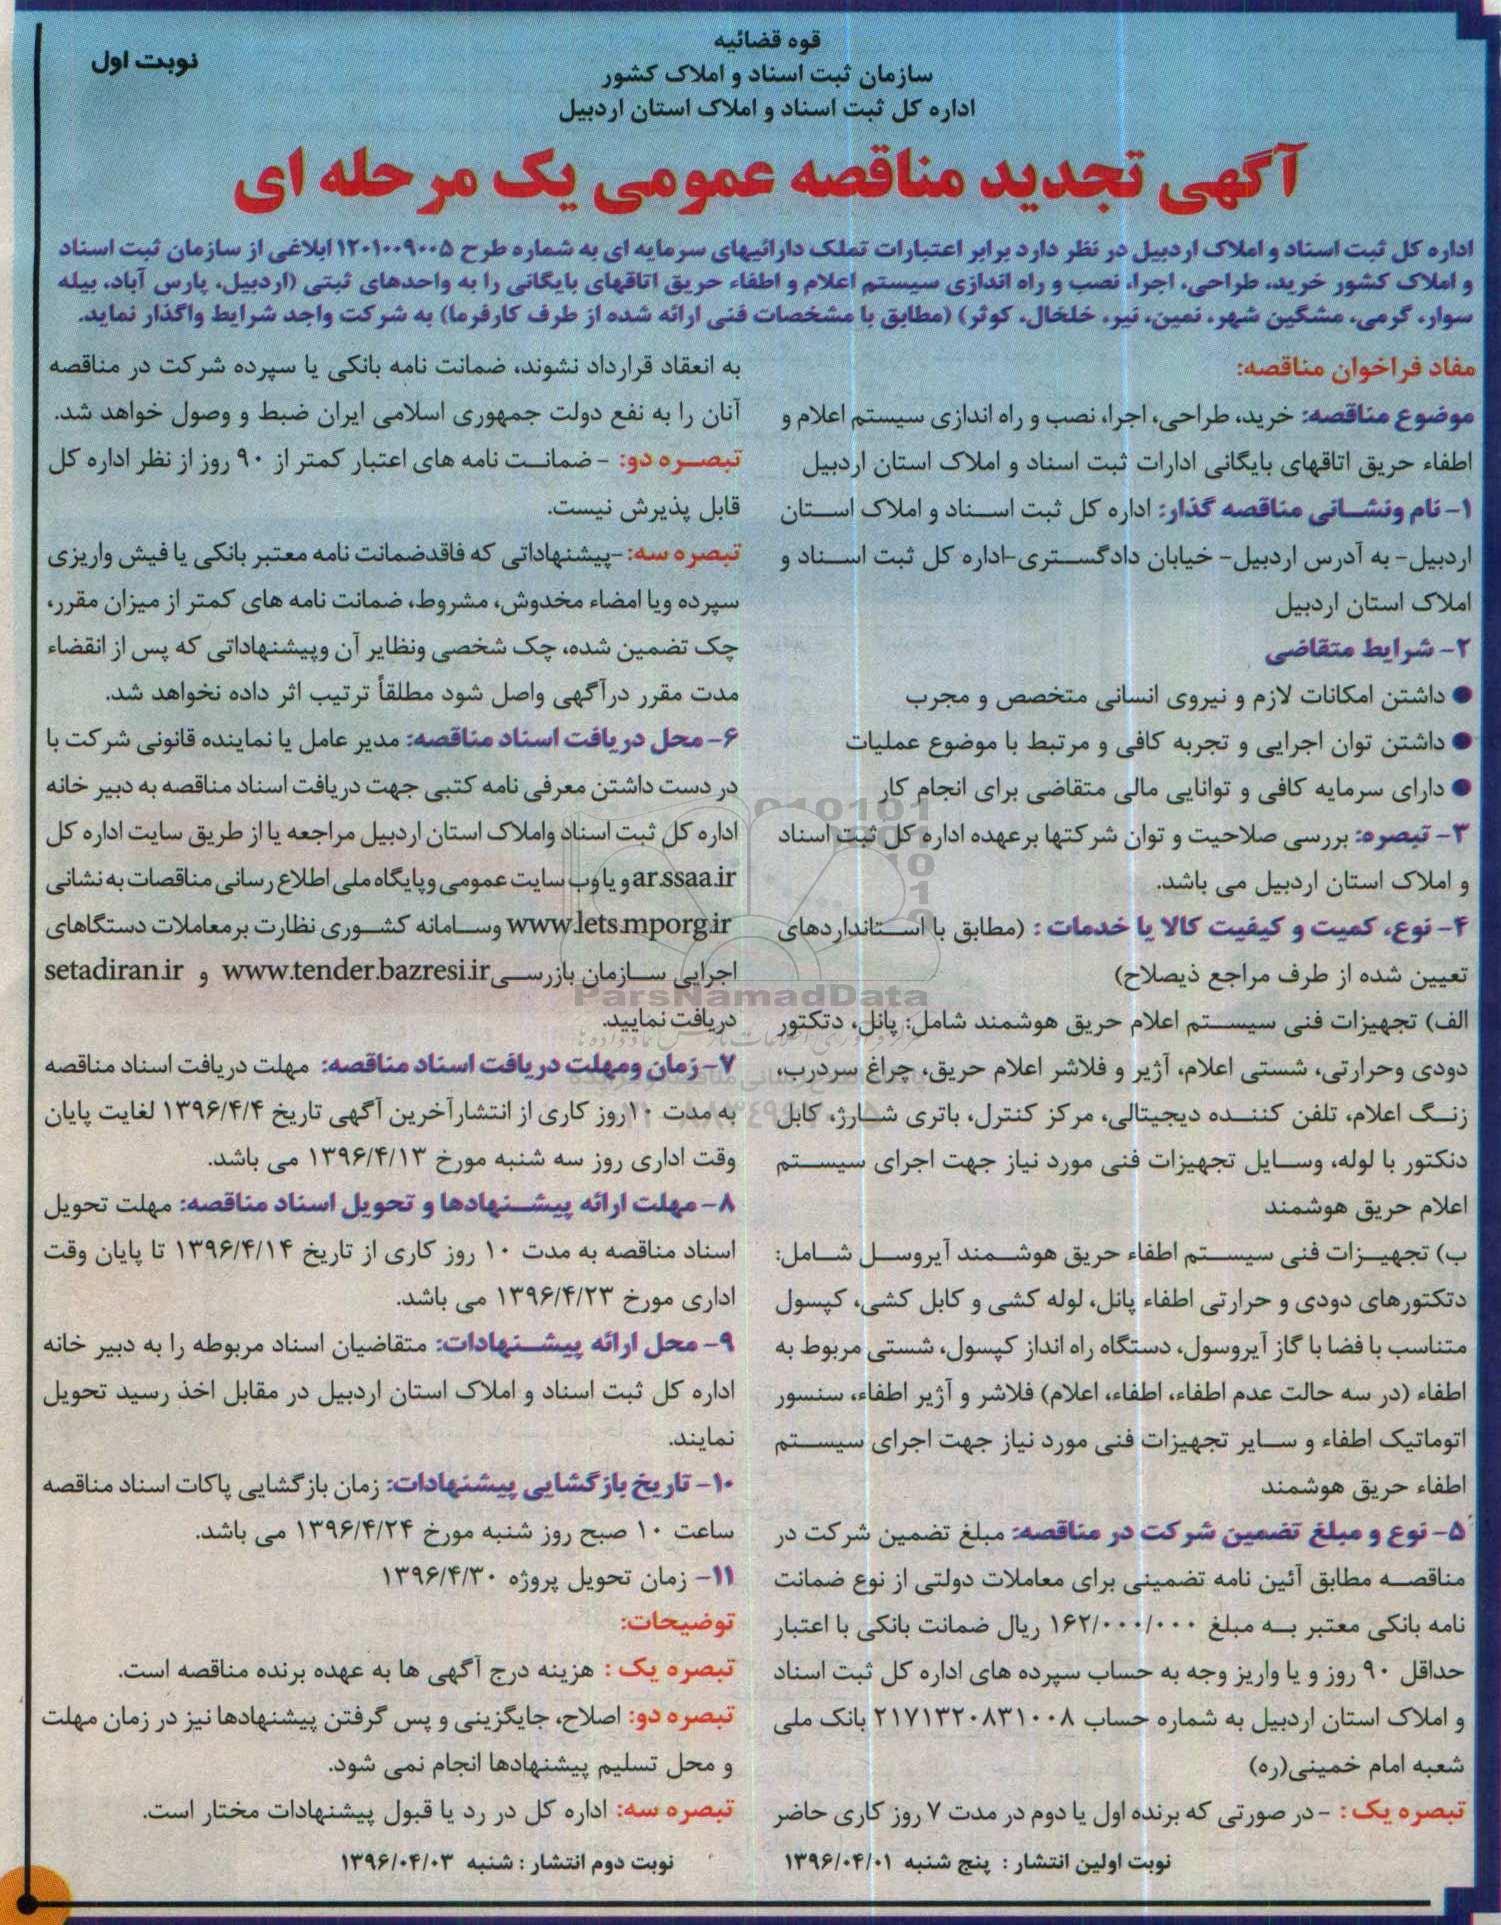 قوه قضائیه
سازمان ثبت اسناد و املاک کشور
اداره کل ثبت اسناد و املاک استان اردبیل
نوبت اول
آگهی تجدید مناقصه عمومی یک مرحله ای
اداره کل ثبت اسناد و املاک اردبیل در نظر دارد برابر اعتبارات تملک دارائیهای سرمایه ای به شماره طرح ۱۲۰۱۰۰۹۰۰۵ ابلاغی از سازمان ثبت اسناد
و املاک کشور خرید، طراحی، اجرا، نصب و راه اندازی سیستم اعلام و اطفاء حریق اتاقهای بایگانی را به واحدهای ثبتی (اردبیل، پارس آباد، بیله
سوار، گرمی، مشگین شهر، نمین، نیر، خلخال، کوثر) (مطابق با مشخصات فنی ارائه شده از طرف کارفرما) به شرکت واجد شرایط واگذار نماید.
مفاد فراخوان مناقصه:
موضوع مناقصه: خرید، طراحی، اجرا، نصب و راه اندازی سیستم اعلام و
اطفاء حریق اتاقهای بایگانی ادارات ثبت اسناد و املاک استان اردبیل
۱- نام ونشانی مناقصه گذار: اداره کل ثبت اسناد و املاک استان
اردبیل- به آدرس اردبیل- خیابان دادگستری-اداره کل ثبت اسناد و
املاک استان اردبیل
۲- شرایط متقاضی
● داشتن امکانات لازم و نیروی انسانی متخصص و مجرب
● داشتن توان اجرایی و تجربه کافی و مرتبط با موضوع عملیات
● دارای سرمایه کافی و توانایی مالی متقاضی برای انجام کار
۳- تبصره: بررسی صلاحیت و توان شرکتها برعهده اداره کل ثبت اسناد
و املاک استان اردبیل می باشد.
۴- نوع، کمیت و کیفیت کالا یا خدمات : (مطابق با استانداردهای
تعیین شده از طرف مراجع ذیصلاح)
الف) تجهیزات فنی سیستم اعلام حریق هوشمند شامل: پانل، دتکتور
دودی وحرارتی، شستی اعلام، آژیر و فلاشر اعلام حریق، چراغ سردرب،
زنگ اعلام، تلفن کننده دیجیتالی، مرکز کنترل، باتری شارژ، کابل
دنکتور با لوله، وسایل تجهیزات فنی مورد نیاز جهت اجرای سیستم
اعلام حریق هوشمند
ب) تجهیزات فنی سیستم اطفاء حریق هوشمند آیروسل شامل:
دتکتورهای دودی و حرارتی اطفاء پانل، لوله کشی و کابل کشی، کپسول
متناسب با فضا با گاز آیروسول، دستگاه راه انداز کپسول، شستی مربوط به
اطفاء (در سه حالت عدم اطفاء، اطفاء، اعلام) فلاشر و آژیر اطفاء، سنسور
اتوماتیک اطفاء و سایر تجهیزات فنی مورد نیاز جهت اجرای سیستم
اطفاء حریق هوشمند
۵- نوع و مبلغ تضمین شرکت در مناقصه: مبلغ تضمین شرکت در
مناقصه مطابق آئین نامه تضمینی برای معاملات دولتی از نوع ضمانت
نامه بانکی معتبر به مبلغ ۱۶۲/۰۰۰/۰۰۰ ریال ضمانت بانکی با اعتبار
حداقل ۹۰ روز و یا واریز وجه به حساب سپرده های اداره کل ثبت اسناد
و املاک استان اردبیل به شماره حساب ۲۱۷۱۳۲۰۸۳۱۰۰۸ بانک ملی
شعبه امام خمینی(ره)
تبصره یک : - در صورتی که برنده اول یا دوم در مدت ۷ روز کاری حاضر
به انعقاد قرارداد نشوند، ضمانت نامه بانکی یا سپرده شرکت در مناقصه
آنان را به نفع دولت جمهوری اسلامی ایران ضبط و وصول خواهد شد.
تبصره دو: - ضمانت نامه های اعتبار کمتر از ۹۰ روز از نظر اداره کل
قابل پذیرش نیست.
تبصره سه: -پیشنهاداتی که فاقدضمانت نامه معتبر بانکی یا فیش واریزی
سپرده ویا امضاء مخدوش، مشروط، ضمانت نامه های کمتر از میزان مقرر،
چک تضمین شده، چک شخصی ونظایر آن وپیشنهاداتی که پس از انقضاء
مدت مقرر درآگهی واصل شود مطلقاً ترتیب اثر داده نخواهد شد.
۶- محل دریافت اسناد مناقصه: مدیر عامل یا نماینده قانونی شرکت با
در دست داشتن معرفی نامه کتبی جهت دریافت اسناد مناقصه به دبیر خانه
اداره کل ثبت اسناد واملاک استان اردبیل مراجعه یا از طریق سایت اداره کل
ar.ssaa.ir و یا وب سایت عمومی وپایگاه ملی اطلاع رسانی مناقصات به نشانی
www.lets.mporg.ir وسامانه کشوری نظارت برمعاملات دستگاهای
اجرایی سازمان بازرسی www.tender.bazresi.ir و setadiran.ir
دریافت نمایید.
۷- زمان ومهلت دریافت اسناد مناقصه: مهلت دریافت اسناد مناقصه
به مدت ۱۰روز کاری از انتشارآخرین آگهی تاریخ ۱۳۹۶/۴/۴ لغایت پایان
وقت اداری روز سه شنبه مورخ ۱۳۹۶/۴/۱۳ می باشد.
۸- مهلت ارائه پیشنهادها و تحویل اسناد مناقصه: مهلت تحویل
اسناد مناقصه به مدت ۱۰ روز کاری از تاریخ ۱۳۹۶/۴/۱۴ تا پایان وقت
اداری مورخ ۱۳۹۶/۴/۲۳ می باشد.
۹- محل ارائه پیشنهادات: متقاضیان اسناد مربوطه را به دبیر خانه
اداره کل ثبت اسناد و املاک استان اردبیل در مقابل اخذ رسید تحویل
نمایند.
۱۰- تاریخ بازگشایی پیشنهادات: زمان بازگشایی پاکات اسناد مناقصه
ساعت ۱۰ صبح روز شنبه مورخ ۱۳۹۶/۴/۲۴ می باشد.
۱۱- زمان تحویل پروژه ۱۳۹۶/۴/۳۰
توضیحات:
تبصره یک : هزینه درج آگهی ها به عهده برنده مناقصه است.
تبصره دو: اصلاح، جایگزینی و پس گرفتن پیشنهادها نیز در زمان مهلت
و محل تسلیم پیشنهادها انجام نمی شود.
تبصره سه: اداره کل در رد یا قبول پیشنهادات مختار است.
نوبت اولین انتشار : پنج شنبه ۱۳۹۶/۰۴/۰۱
نوبت دوم انتشار : شنبه ۱۳۹۶/۰۴/۰۳
ParsNamadData